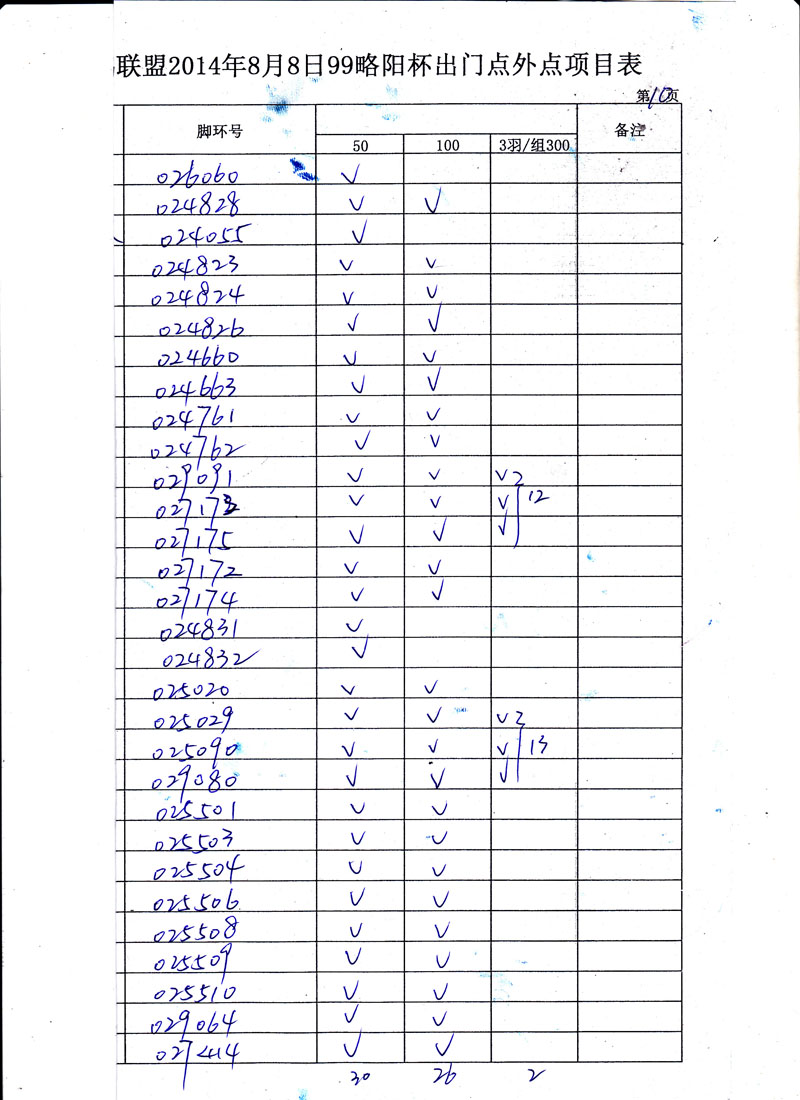 联盟2014年8月8日99略阳杯出门点外点项目表
第10页
脚环号 备注
50 100 3羽/组300
026060 √
024828 √ √
024055 √
024823 √ √
024824 √ √
024826 √ √
024660 √ √
024663 √ √
024761 √ √
024762 √ √
029091 √ √ √
027173 √ √ √ 12
027175 √ √ √
027172 √ √
027174 √ √
024831 √
024832 √
025020 √ √
025029 √ √ √
025090 √ √ √ 13
029080 √ √ √
025501 √ √
025503 √ √
025504 √ √
025506 √ √
025508 √ √
025509 √ √
025510 √ √
029064 √ √
027414 √ √
30 26 2